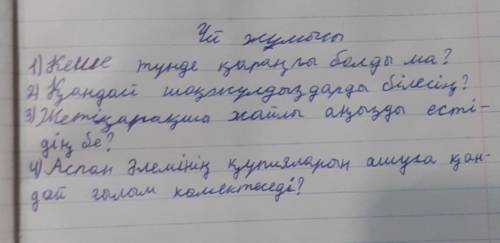 Үй жұмысы
1) Кеше түнде қараңғы болды ма?
2) Қандай шоқжұлдыздарды білесің?
3) Жетіқарақшы жайлы аңызды есті-
дің бе?
4) Аспан әлемінің құпияларын ашуға қан-
дай ғылым көмектеседі?